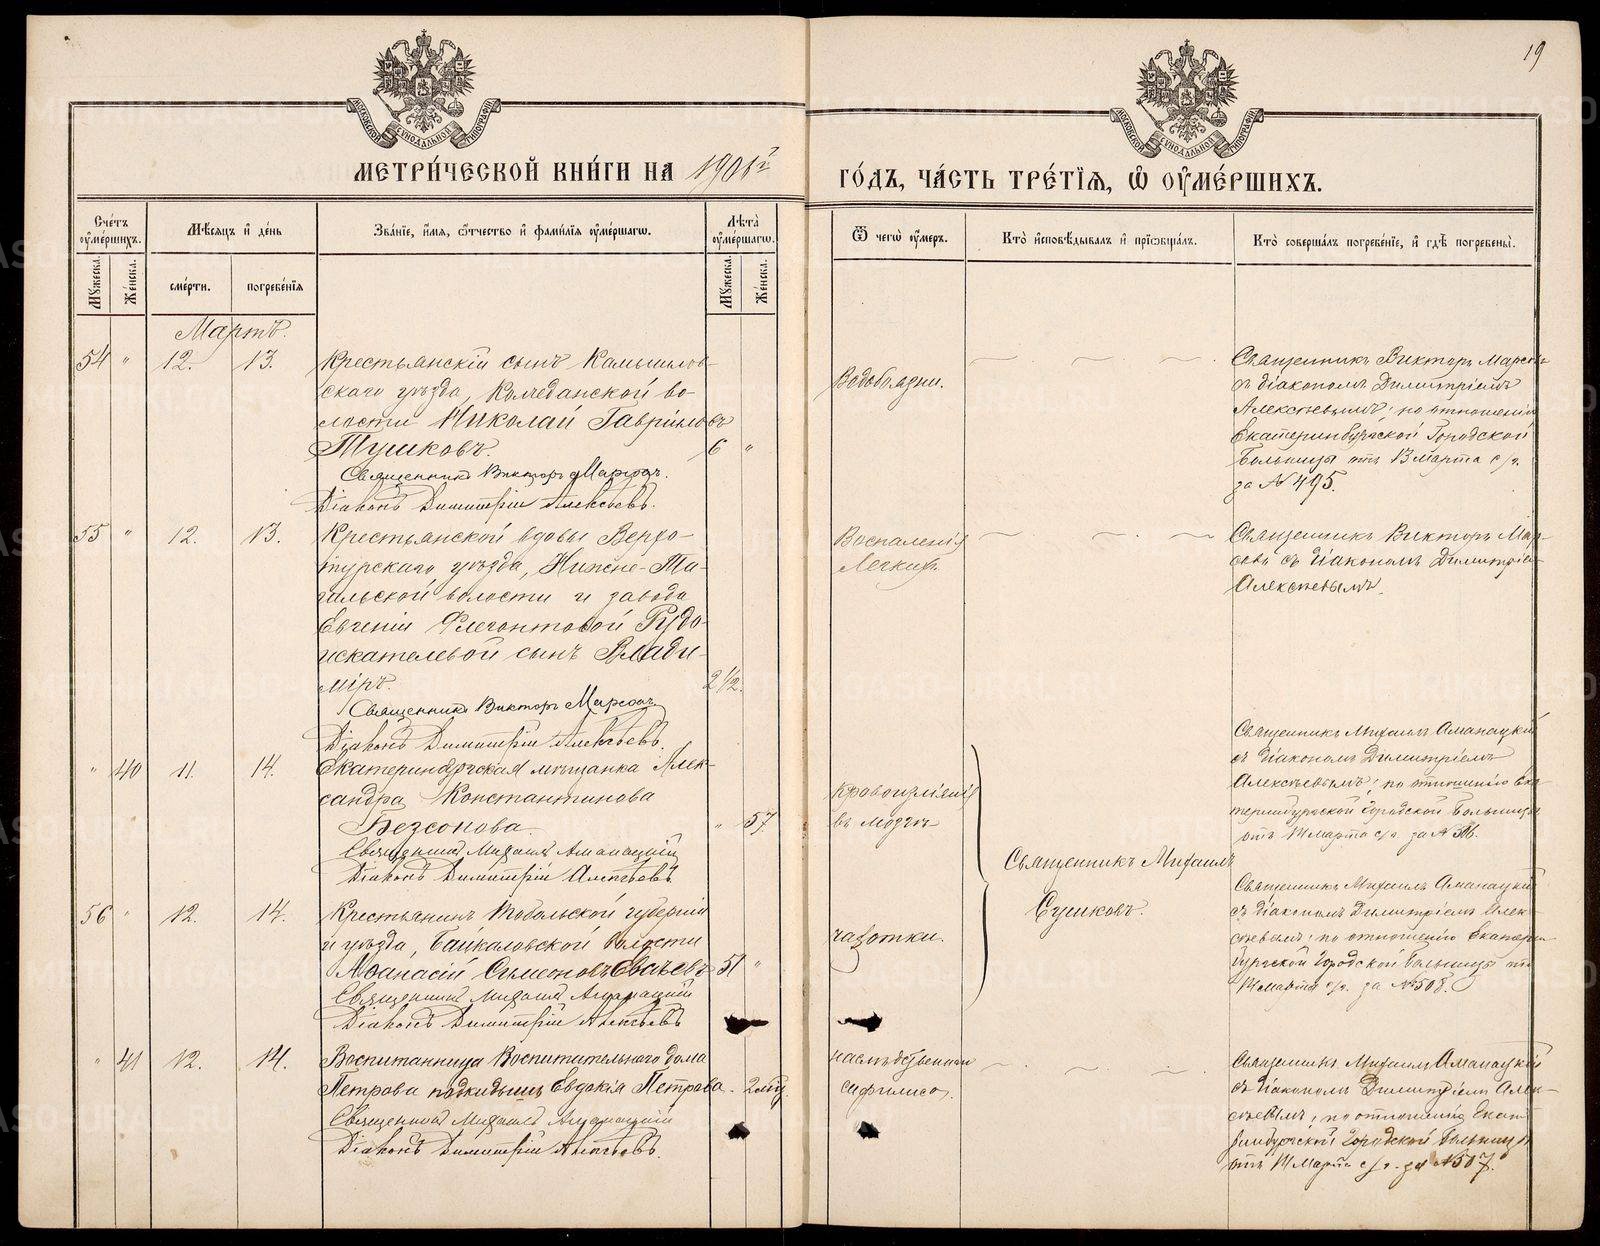 19
МЕТРИ́ЧЕСКОЙ КНИ́ГИ НА 1901й ГО́ДЪ, ЧА́СТЬ ТРЕ́ТІѦ, Ѡ ОУМЕ́РШИХЪ.
Сче́тъ оумершихъ.
Мѣ́сяцъ и де́нь
Зва́ніе, и́мя, о́тчество и фами́лія оуме́ршагѡ.
Лѣта̀ оуме́ршагѡ.
Ѿ чегѡ̀ оу́меръ.
Кто̀ исповѣ́дывалъ и пріѡбща́лъ.
Кто̀ соверша́лъ погребе́ніе, и гдѣ̀ погребены̀.
Мужеска.
Женска.
сме́рти.
погребе́нія
Мужеска.
Женска.
Мартъ.
54 " 12. 13.
Крестьянскій сынъ Камышлов-
скаго уѣзда, Колчеданской во-
лости Николай Гавріиловъ
Тушковъ. 6 "
Священникъ Викторъ Марсовъ.
Діаконъ Димитрій Алексѣевъ.
Водобоязни.
Священникъ Викторъ Марсовъ
съ діакономъ Димитріемъ
Алексѣевымъ; по отношенію
Екатеринбургской Городской
Больницы отъ 13 марта с/г.
за № 495.
55 " 12. 13.
Крестьянской вдовы Верхо-
турскаго уѣзда, Нижне-Та-
гильской волости и завода
Евгеніи Флегонтовой Рудо-
искателевой сынъ Влади-
міръ. 2 1/2.
Священникъ Викторъ Марсовъ
Діаконъ Димитрій Алексѣевъ.
Воспаленія
Легкихъ.
Священникъ Викторъ Мар-
совъ съ діакономъ Димитріемъ
Алексѣевымъ.
" 40 11. 14.
Екатеринбургская мѣщанка Алек-
сандра Константинова
Безсонова. " 57
Священникъ Михаилъ Аманацкій
Діаконъ Димитрій Алексѣевъ
Кровоизліянія
въ мозгъ
Священникъ Михаилъ
Сушковъ.
Священникъ Михаилъ Аманацкій
съ діакономъ Димитріемъ
Алексѣевымъ; по отношенію Ека-
теринбургской Городской Больницы
отъ 14 марта с/г. за № 506.
56 " 12. 14.
Крестьянинъ Тобольской губерніи
и уѣзда, Байкаловской волости
Аѳанасій Симеоновъ Евсѣевъ 51 "
Священникъ Михаилъ Аманацкій
Діаконъ Димитрій Алексѣевъ
чахотки.
Священникъ Михаилъ Аманацкій
съ діакономъ Димитріемъ Алек-
сѣевымъ; по отношенію Екатерин-
бургской Городской Больницы отъ
14 марта с/г. за № 508.
" 41 12. 14.
Воспитанница Воспитательнаго дома
Петрова подкидышъ Евдокія Петрова. 2 мѣс.
Священникъ Михаилъ Аманацкій
Діаконъ Димитрій Алексѣевъ.
наслѣдственнаго
сифилиса.
Священникъ Михаилъ Аманацкій
съ діакономъ Димитріемъ Алек-
сѣевымъ; по отношенію Екате-
ринбургской Городской Больницы
отъ 14 Марта с/г. за № 507.